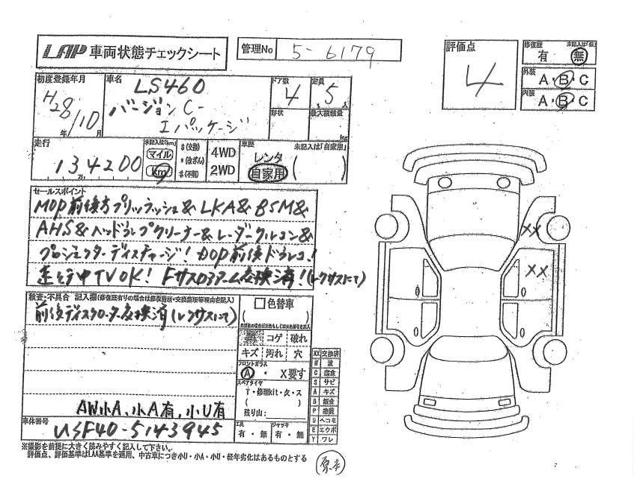 LAP 車両状態チェックシート
管理No 5-6179
評価点 4
修復歴 有 無
外装 A・B・C
内装 A・B・C
初度登録年月 H28年/10月
車名 LS460
バージョンC
Iパッケージ
ドア数 4
定員 5人
形状
最大積載量 kg
走行 134200
マイル
km
4WD
2WD
車歴
レンタ
自家用
セールスポイント
MOP前後方プリクラッシュ& LKA& BSM&
AHS&ヘッドランプクリーナー&レーダークルコン&
プロジェクターディスチャージ! DOP前後ドラレコ!
走行中TVOK! Fサスロアアーム交換済!(レクサスにて)
検査・不具合 記入欄
前後ディスクローター交換済(レクサスにて)
AW小A, 小A有, 小U有
車体番号 USF40-5143945
色替車
コゲ 破れ
キズ 汚れ 穴
フロントガラス
A・ X要す
スペアタイヤ
T・修理kit・欠・ス
残り山:
工具 有・無
ジャッキ 有・無
XX 交換済
W 波
C 腐食
S サビ
A キズ
B 鈑金
P 塗装
U ヘコミ
E エクボ
Y ワレ
XX
XX
※撮影を前提に大きく読みやすく記入して下さい。
評価点、評価基準はLAA基準を適用、中古車につき小U・小A・小U・経年劣化はあるものとする